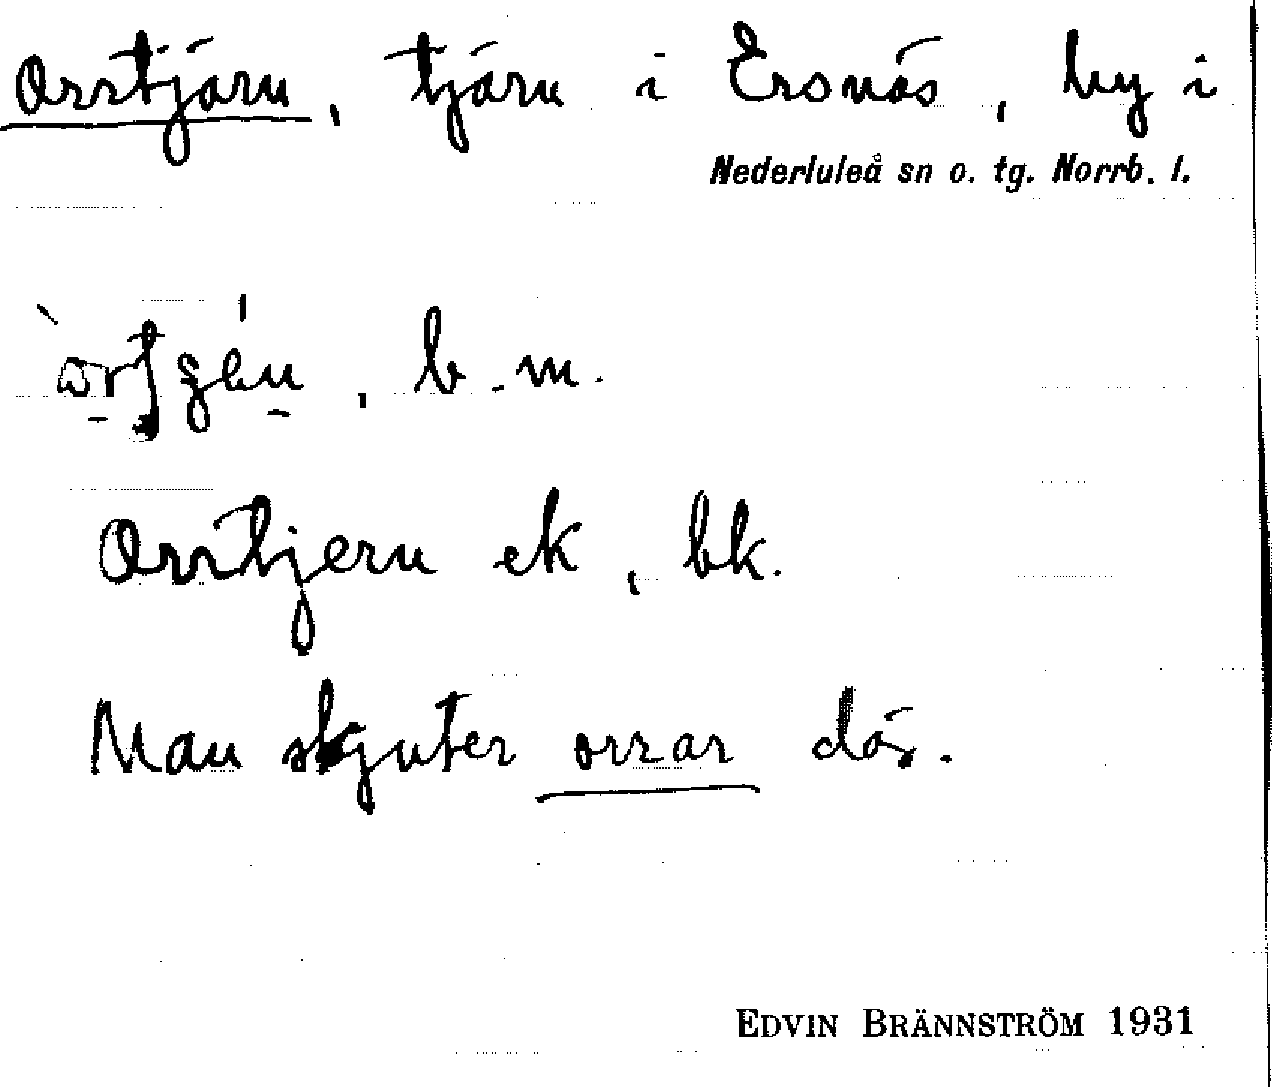 Orrtjärn, tjärn i Ersnäs, by i
Nederluleå sn o. tg. Norrb. l.
, b. m.
Orrtjern ek, bk.
Man skjuter orrar där.
EDVIN BRÄNNSTRÖM 1931